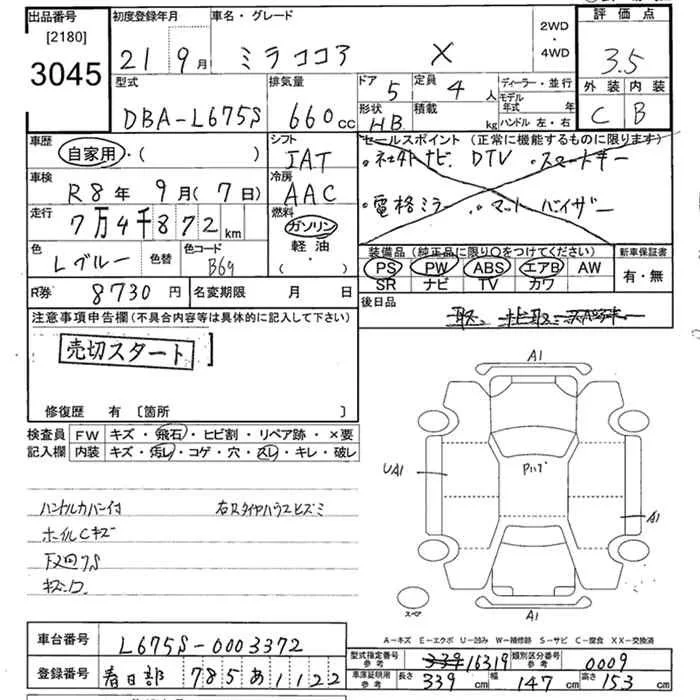 出品番号
[2180]
3045
初度登録年月
21 9月
車名・グレード
ミラココア X
2WD
・
4WD
評価点
3.5
外装 内装
C B
型式
DBA-L675S
排気量
660 cc
ドア 5
定員 4 人
形状 HB
積載 kg
ディーラー・並行
モデル年式 年
ハンドル 左・右
車歴
自家用・( )
シフト
IAT
車検
R8年 9月(7日)
冷房
AAC
走行
7万4千872 km
燃料
ガソリン
軽油・
( )
色
Lブルー
色替
色コード
B69
セールスポイント (正常に機能するものに限ります)
・社外ナビ DTV ・スマートキー
・電格ミラー ・マット バイザー
装備品(純正品に限り○をつけてください)
PS PW ABS エアB AW
SR ナビ TV カワ
新車保証書
有・無
R券 8730円
名変期限 月 日
後日品
注意事項申告欄(不具合内容等は具体的に記入して下さい)
売切スタート
修復歴 有 [箇所 ]
検査員
記入欄
FW キズ・飛石・ヒビ割・リペア跡・×要
内装 キズ・汚レ・コゲ・穴・スレ・キレ・破レ
ハンドルカバー付 右Rタイヤハウスヒズミ
ホイルCキズ
A1
UA1
A1
A1
スペア
A-キズ E-エクボ U-凹み W-補修跡 S-サビ C-腐食 XX-交換済
車台番号
L675S-0003372
登録番号
春日部 785 あ 1122
型式指定番号
参考
16319
類別区分番号
参考
0009
車庫証明用
参考
長さ 339 cm
幅 147 cm
高さ 153 cm